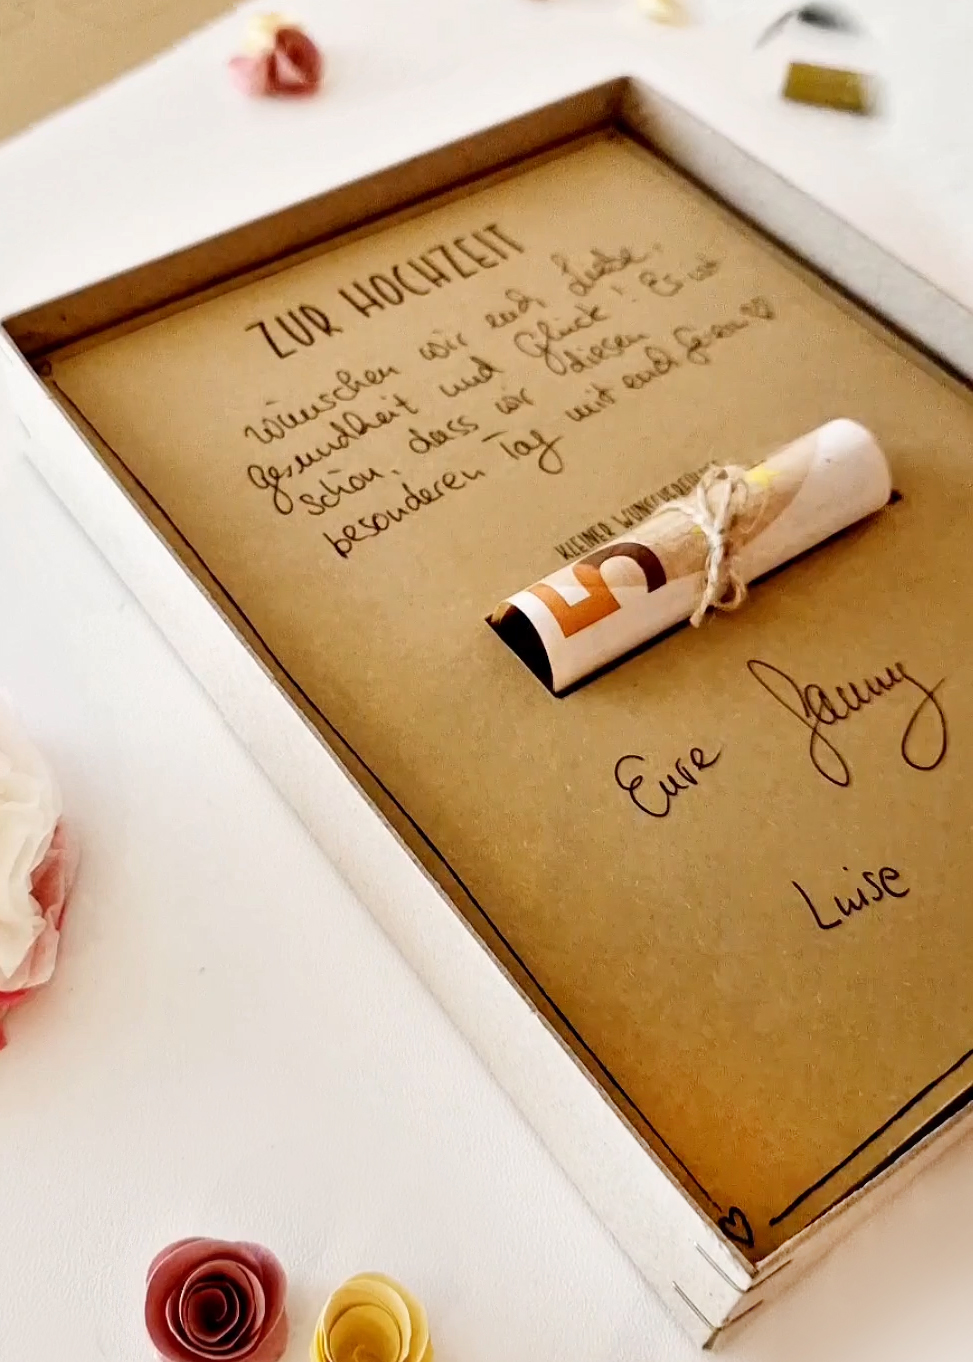 ZUR HOCHZEIT
wünschen wir euch Liebe,
Gesundheit und Glück! Es ist
schön, dass wir diesen
besonderen Tag mit euch feiern♡
KLEINER WUNSCHERFÜLLER
5
Eure Janny
Luise